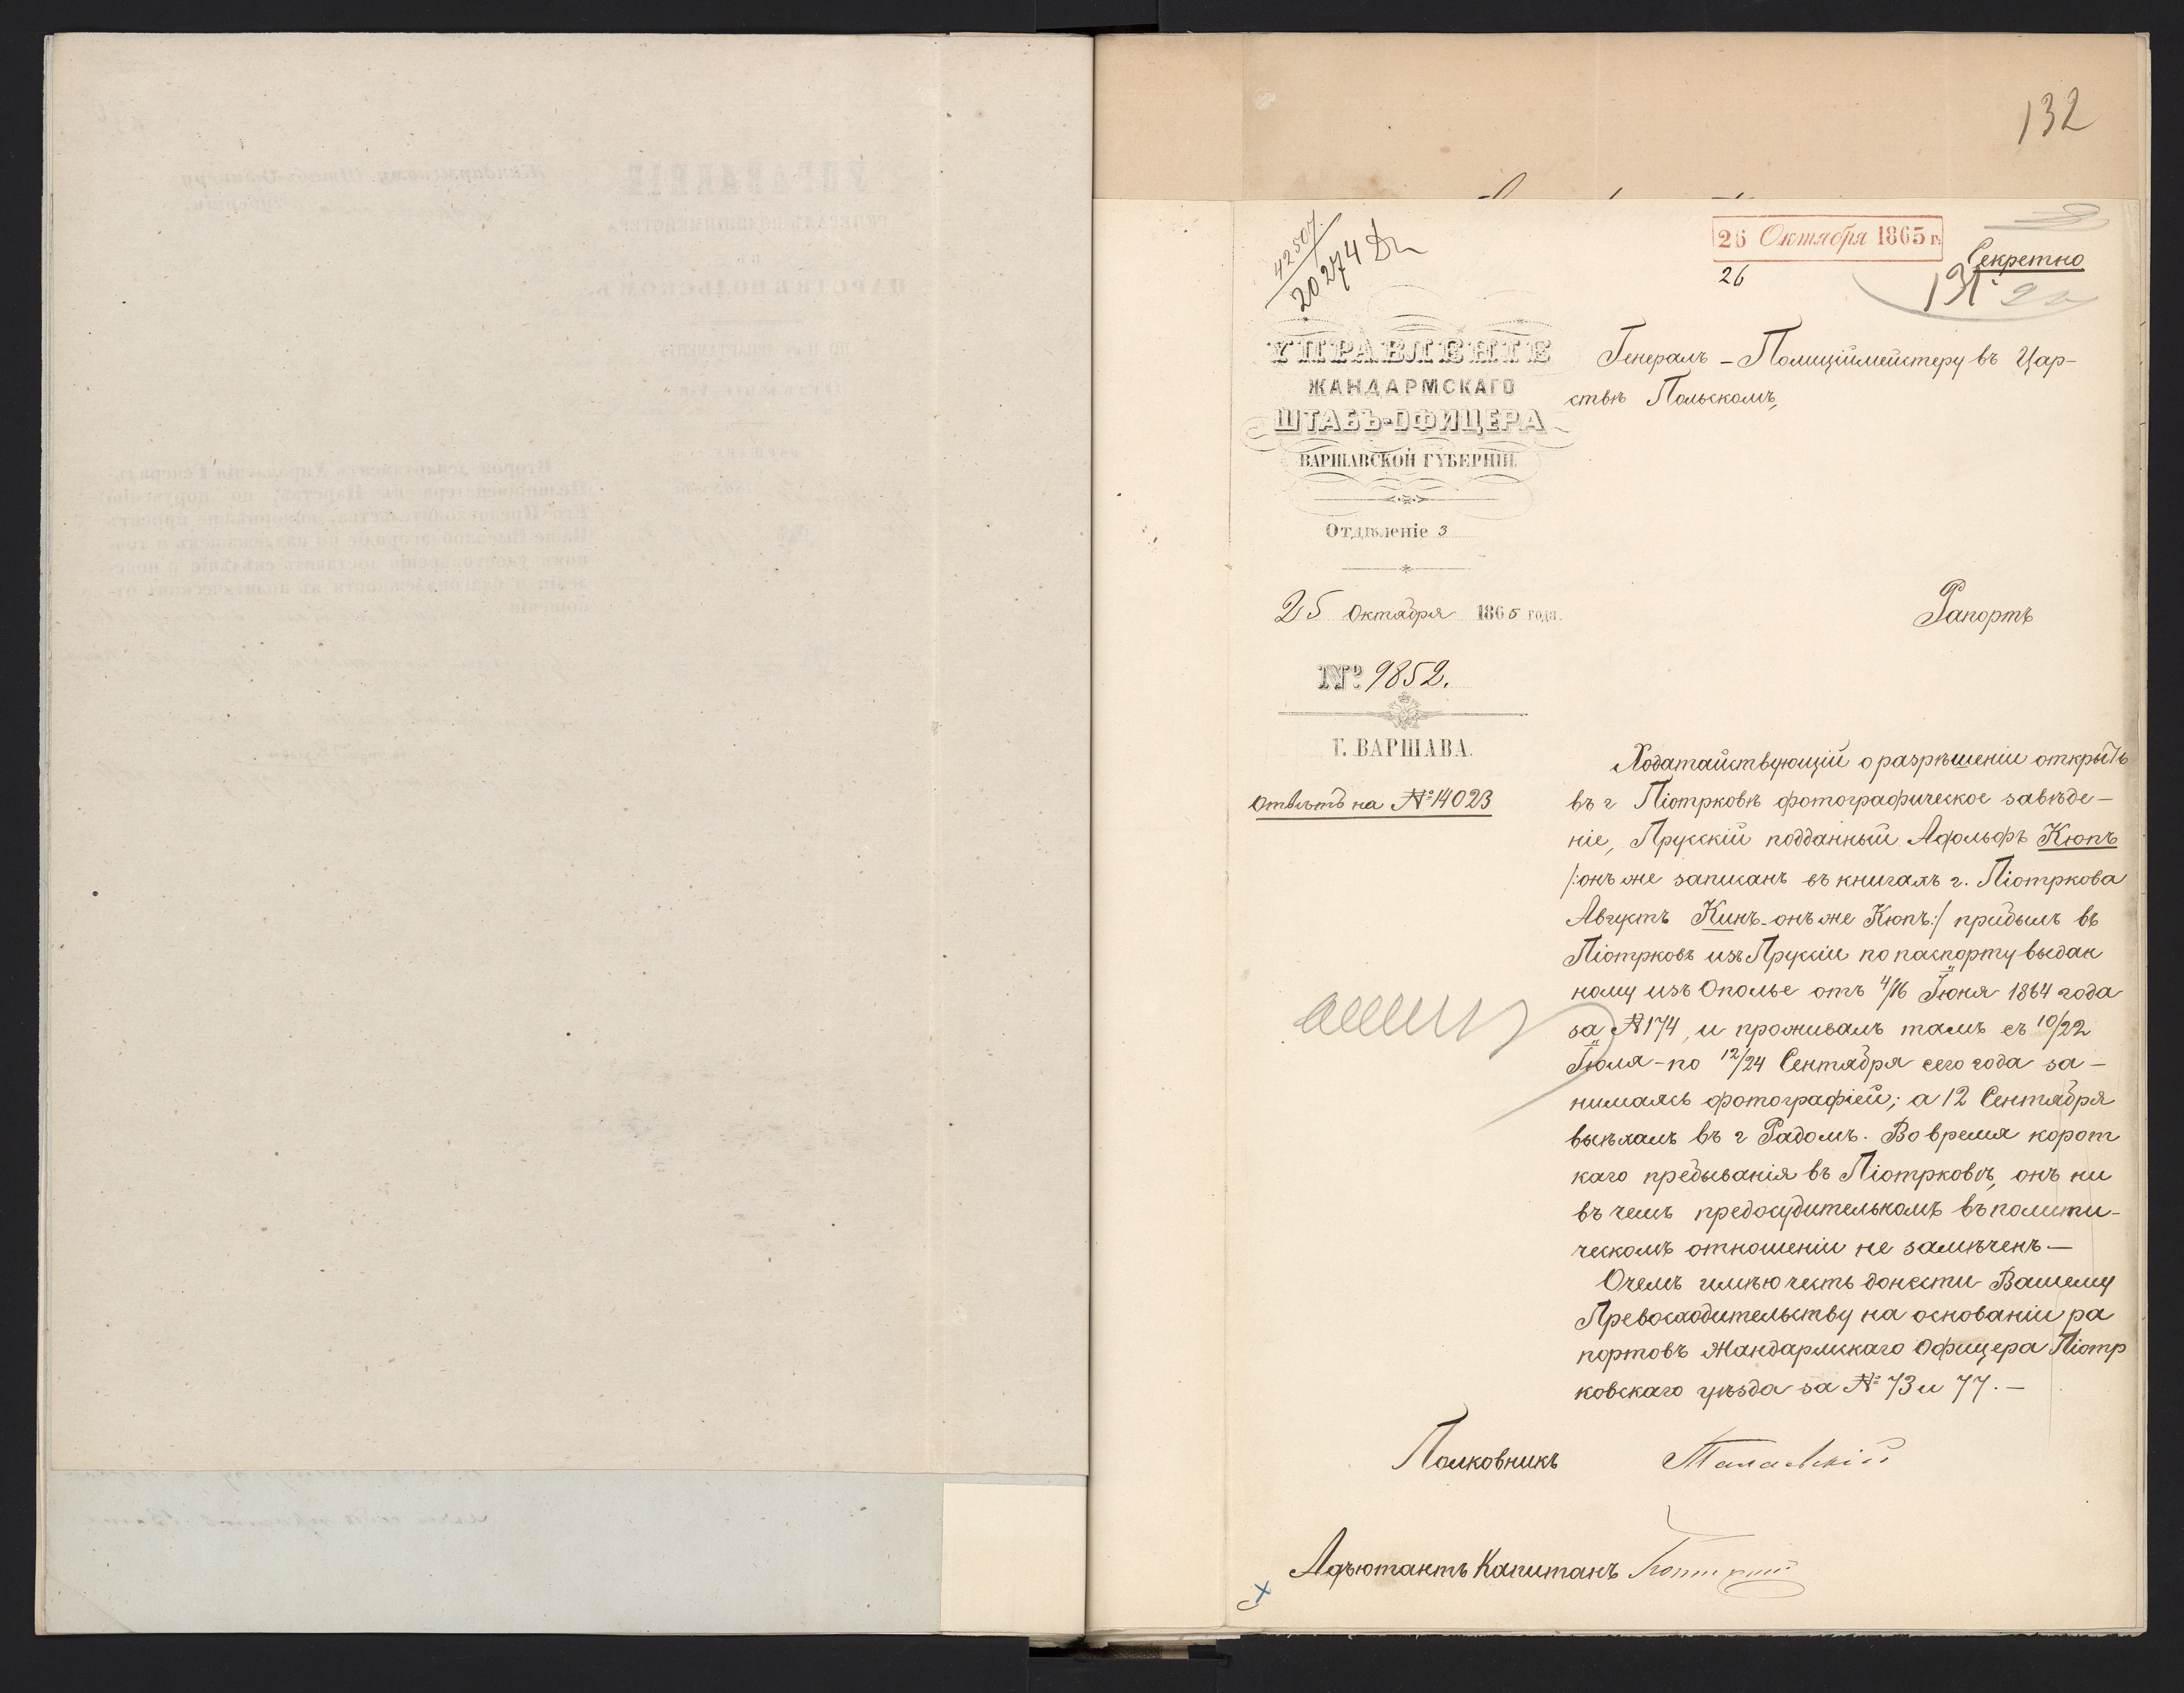 132
26 Октября 1865 г.
26
Секретно
131.
42507
20274
УПРАВЛЕНІЕ
ЖАНДАРМСКАГО
ШТАБЪ-ОФИЦЕРА
ВАРШАВСКОЙ ГУБЕРНІИ.
Отдѣленіе 3
25 Октября 1865 года.
№ 9852.
Г. ВАРШАВА.
Отвѣтъ на № 14023
Генералъ-Полиціймейстеру въ Цар-
ствѣ Польскомъ,
Рапортъ
Ходатайствующій о разрѣшеніи открыть
въ г Піотрковѣ фотографическое завѣде-
ніе, Прусскій подданный Адольфъ Кюпъ
/:онъ же записанъ въ книгахъ г. Піотркова
Августъ Кинъ-онъ же Кюпъ:/ прибылъ въ
Піотрковъ изъ Пруссіи по паспорту выдан
ному изъ Ополье отъ 4/16 Іюня 1864 года
за № 174, и проживалъ тамъ съ 10/22
Іюля-по 12/24 Сентября сего года за-
нимаясь фотографіей; а 12 Сентября
выѣхалъ въ г Радомъ. Во время корот
каго пребыванія въ Піотрковѣ, онъ ни
въ чемъ предосудительномъ въ полити-
ческомъ отношеніи не замѣченъ.—
О чемъ имѣю честь донести Вашему
Превосходительству на основаніи ра
портовъ Жандармскаго Офицера Піотр
ковскаго уѣзда за № 73 и 77.—
Полковникъ
Адъютантъ Капитанъ